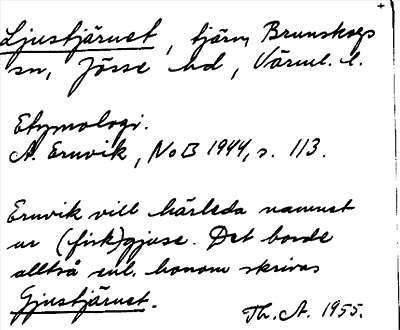 Ljustjärnet, tjärn, Brunskogs
sn, Jösse hd, Värml. l.
Etymologi.
A. Ernvik, NoB 1944, s. 113.
Ernvik vill härleda namnet
ur (fisk)gjuse. Det borde
alltså enl. honom skrivas
Gjustjärnet.
Th. A. 1955.